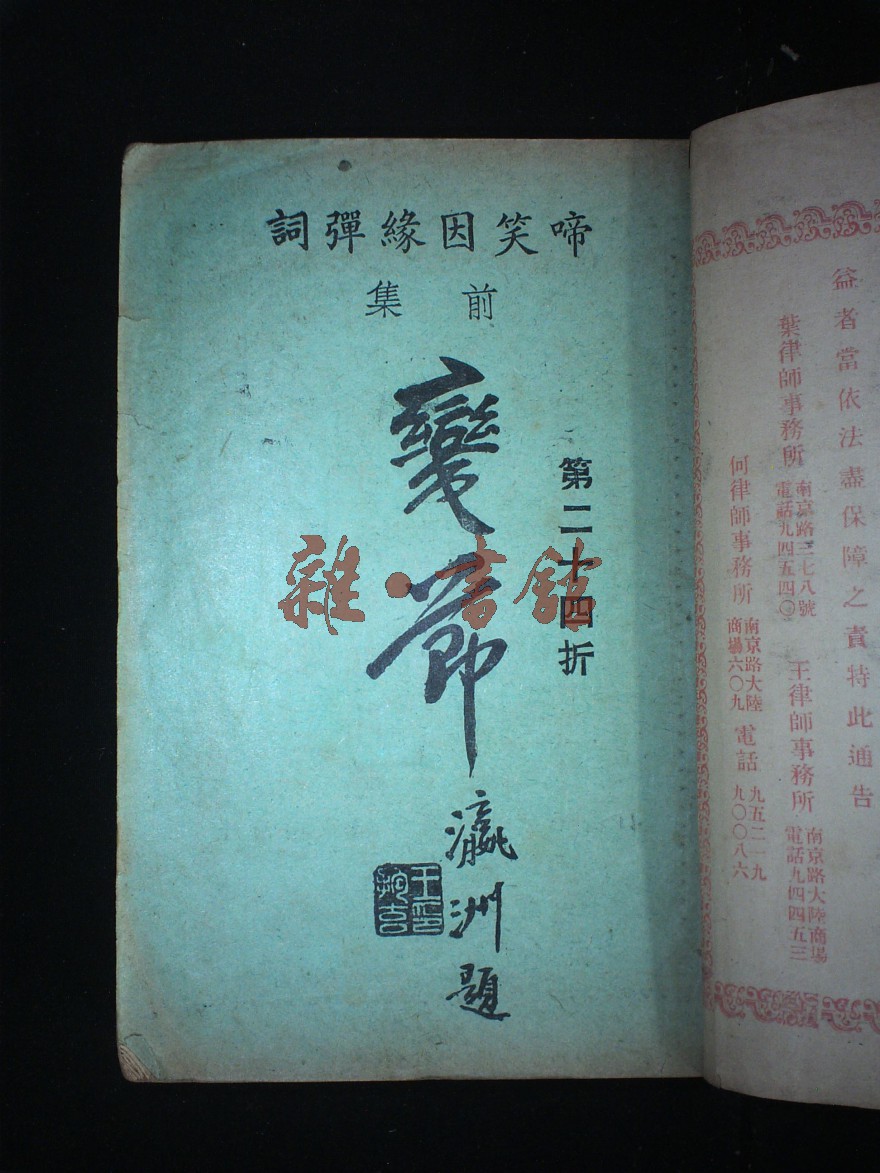 啼笑因緣彈詞
前集
第二十四折
變節
瀛洲題
雜·書館
益者當依法盡保障之責特此通告
葉律師事務所 南京路二七八號 電話九四五四〇
王律師事務所 南京路大陸商場 電話九四四五三
何律師事務所 南京路大陸商場六〇九 電話 九五二一九 九〇〇八六